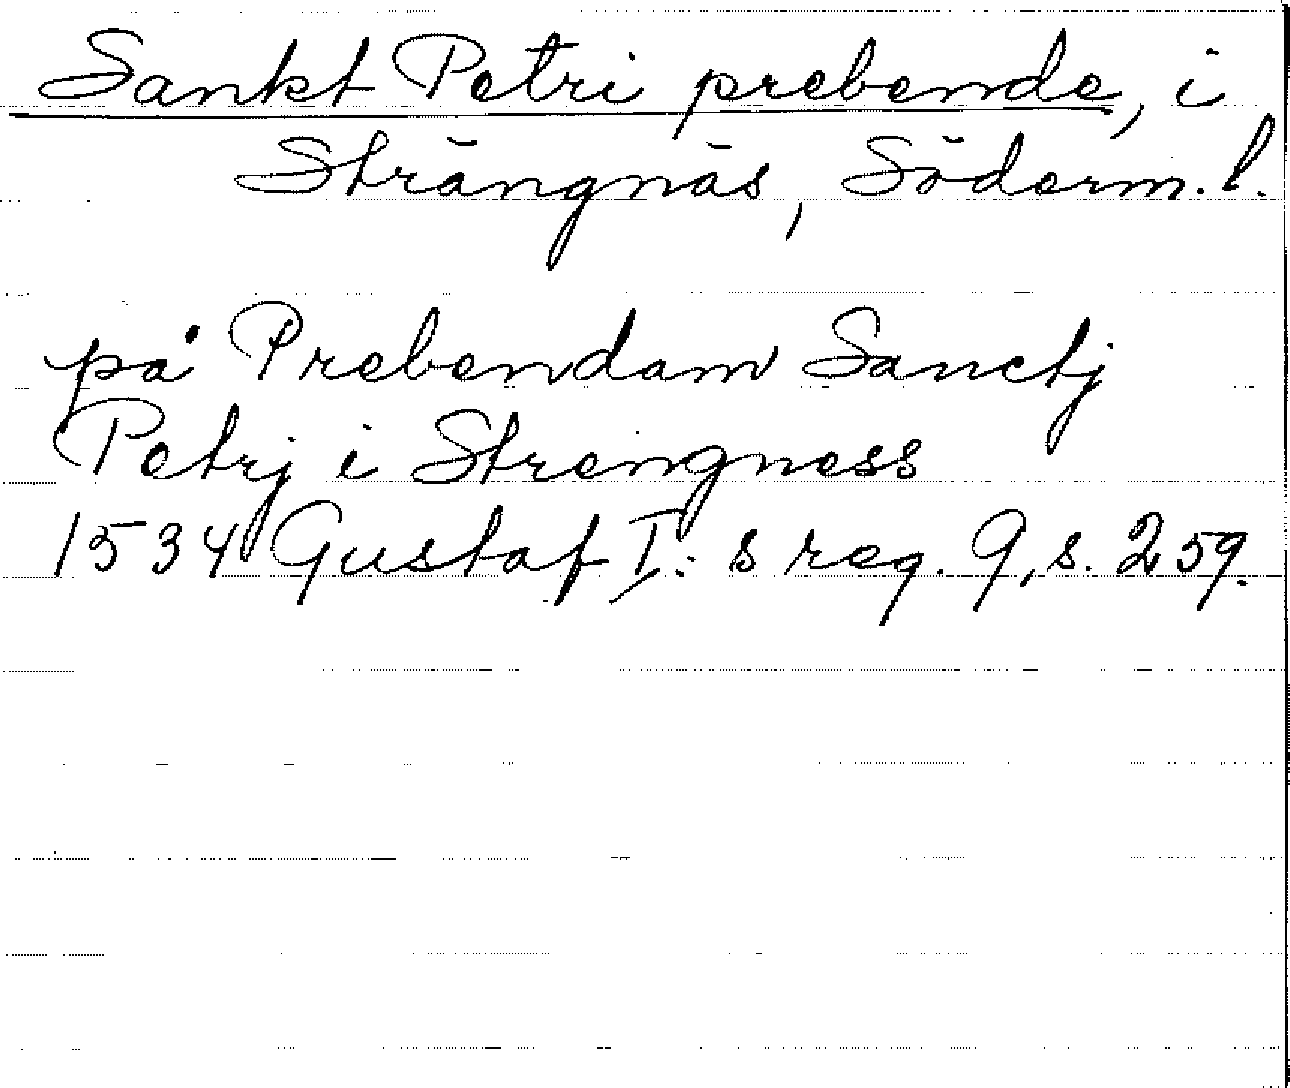 Sankt Petri prebende, i
Strängnäs, Söderm. l.
på Prebendam Sanctj
Petrj i Strengness
1534 Gustaf I: s reg. 9, s. 259.